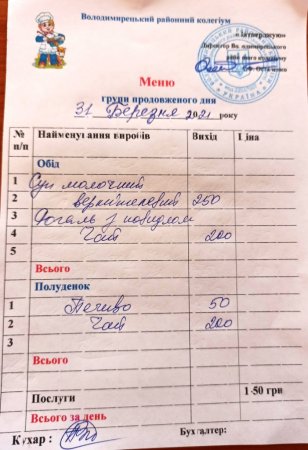 Володимирецький районний колегіум
«Затверджую»
Директор Володимирецького
районного колегіуму
УКРАЇНА
Меню
групи продовженого дня
31 Березня 2021 року
№ п/п Найменування виробів Вихід Ціна
Обід
1 Суп молочний
2 вермішелевий 250
3 Рогаль з повидлом
4 Чай 200
5
Всього
Полуденок
1 Печиво 50
2 Чай 200
3
Всього
Послуги 1-50 грн
Всього за день
Кухар: Бухгалтер: